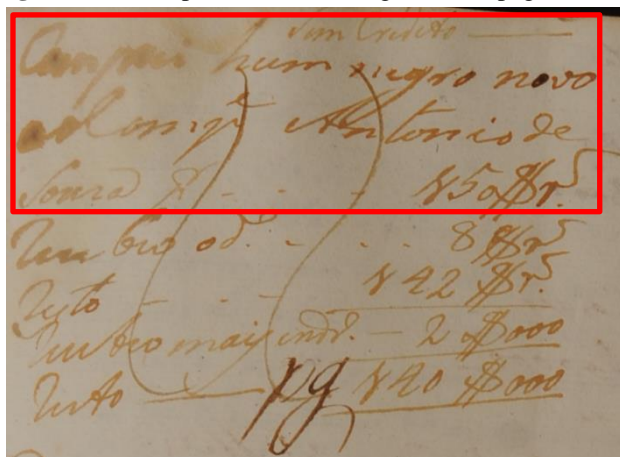 Sem Credito
Comprei hum negro novo
ao Comp.e Antonio de
Souza p.r - - 150$r.s
Recebeo o d.o - - 8$r.s
Resto - - 142$r.s
Recebeo mais - 2$000
Resto pg 140$000